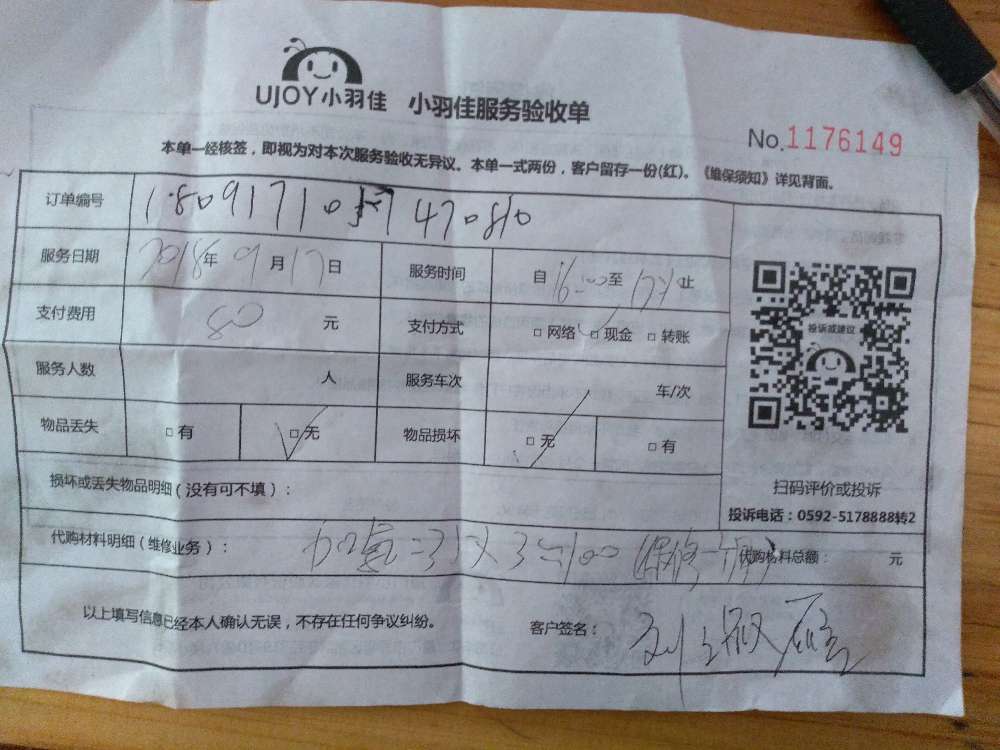 UJOY小羽佳 小羽佳服务验收单
No.1176149
本单一经核签，即视为对本次服务验收无异议。本单一式两份，客户留存一份(红)。《维保须知》详见背面。
订单编号
服务日期 2018年9月17日 服务时间 自16:00至 止
支付费用 80元 支付方式 □网络 □现金 □转账
服务人数 人 服务车次 车/次
物品丢失 □有 □无 物品损坏 □无 □有
投诉或建议
扫码评价或投诉
投诉电话：0592-5178888转2
损坏或丢失物品明细（没有可不填）：
代购材料明细（维修业务）： 加氟 代购材料总额： 元
以上填写信息已经本人确认无误，不存在任何争议纠纷。 客户签名：